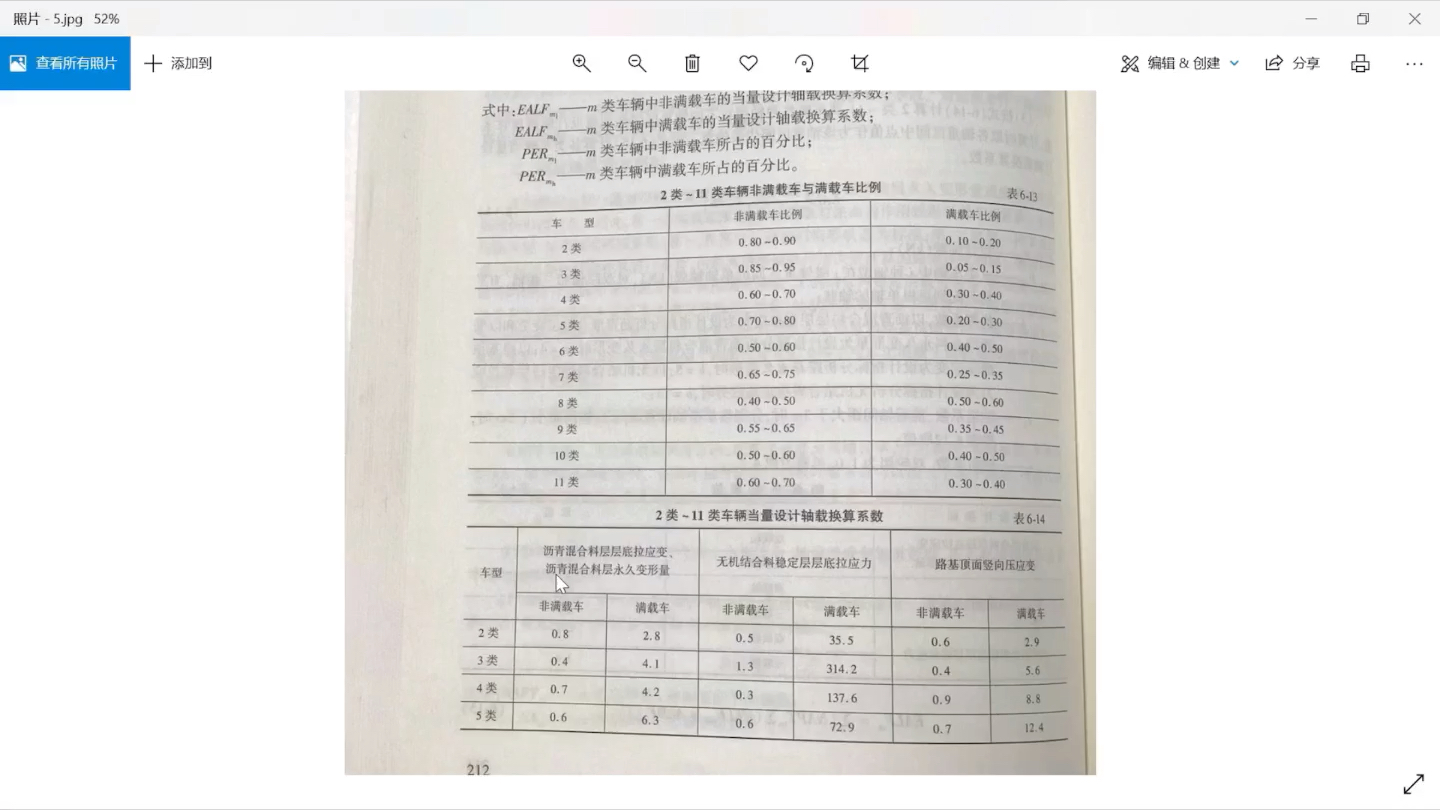 照片 - 5.jpg 52%
查看所有照片 添加到 编辑 & 创建 分享
式中:EALFml——m 类车辆中非满载车的当量设计轴载换算系数；
EALFmh——m 类车辆中满载车的当量设计轴载换算系数；
PERml——m 类车辆中非满载车所占的百分比；
PERmh——m 类车辆中满载车所占的百分比。
2 类~11 类车辆非满载车与满载车比例 表6-13
车 型 非满载车比例 满载车比例
2 类 0.80~0.90 0.10~0.20
3 类 0.85~0.95 0.05~0.15
4 类 0.60~0.70 0.30~0.40
5 类 0.70~0.80 0.20~0.30
6 类 0.50~0.60 0.40~0.50
7 类 0.65~0.75 0.25~0.35
8 类 0.40~0.50 0.50~0.60
9 类 0.55~0.65 0.35~0.45
10 类 0.50~0.60 0.40~0.50
11 类 0.60~0.70 0.30~0.40
2 类~11 类车辆当量设计轴载换算系数 表6-14
车型 沥青混合料层层底拉应变、
沥青混合料层永久变形量 无机结合料稳定层层底拉应力 路基顶面竖向压应变
非满载车 满载车 非满载车 满载车 非满载车 满载车
2 类 0.8 2.8 0.5 35.5 0.6 2.9
3 类 0.4 4.1 1.3 314.2 0.4 5.6
4 类 0.7 4.2 0.3 137.6 0.9 8.8
5 类 0.6 6.3 0.6 72.9 0.7 12.4
212